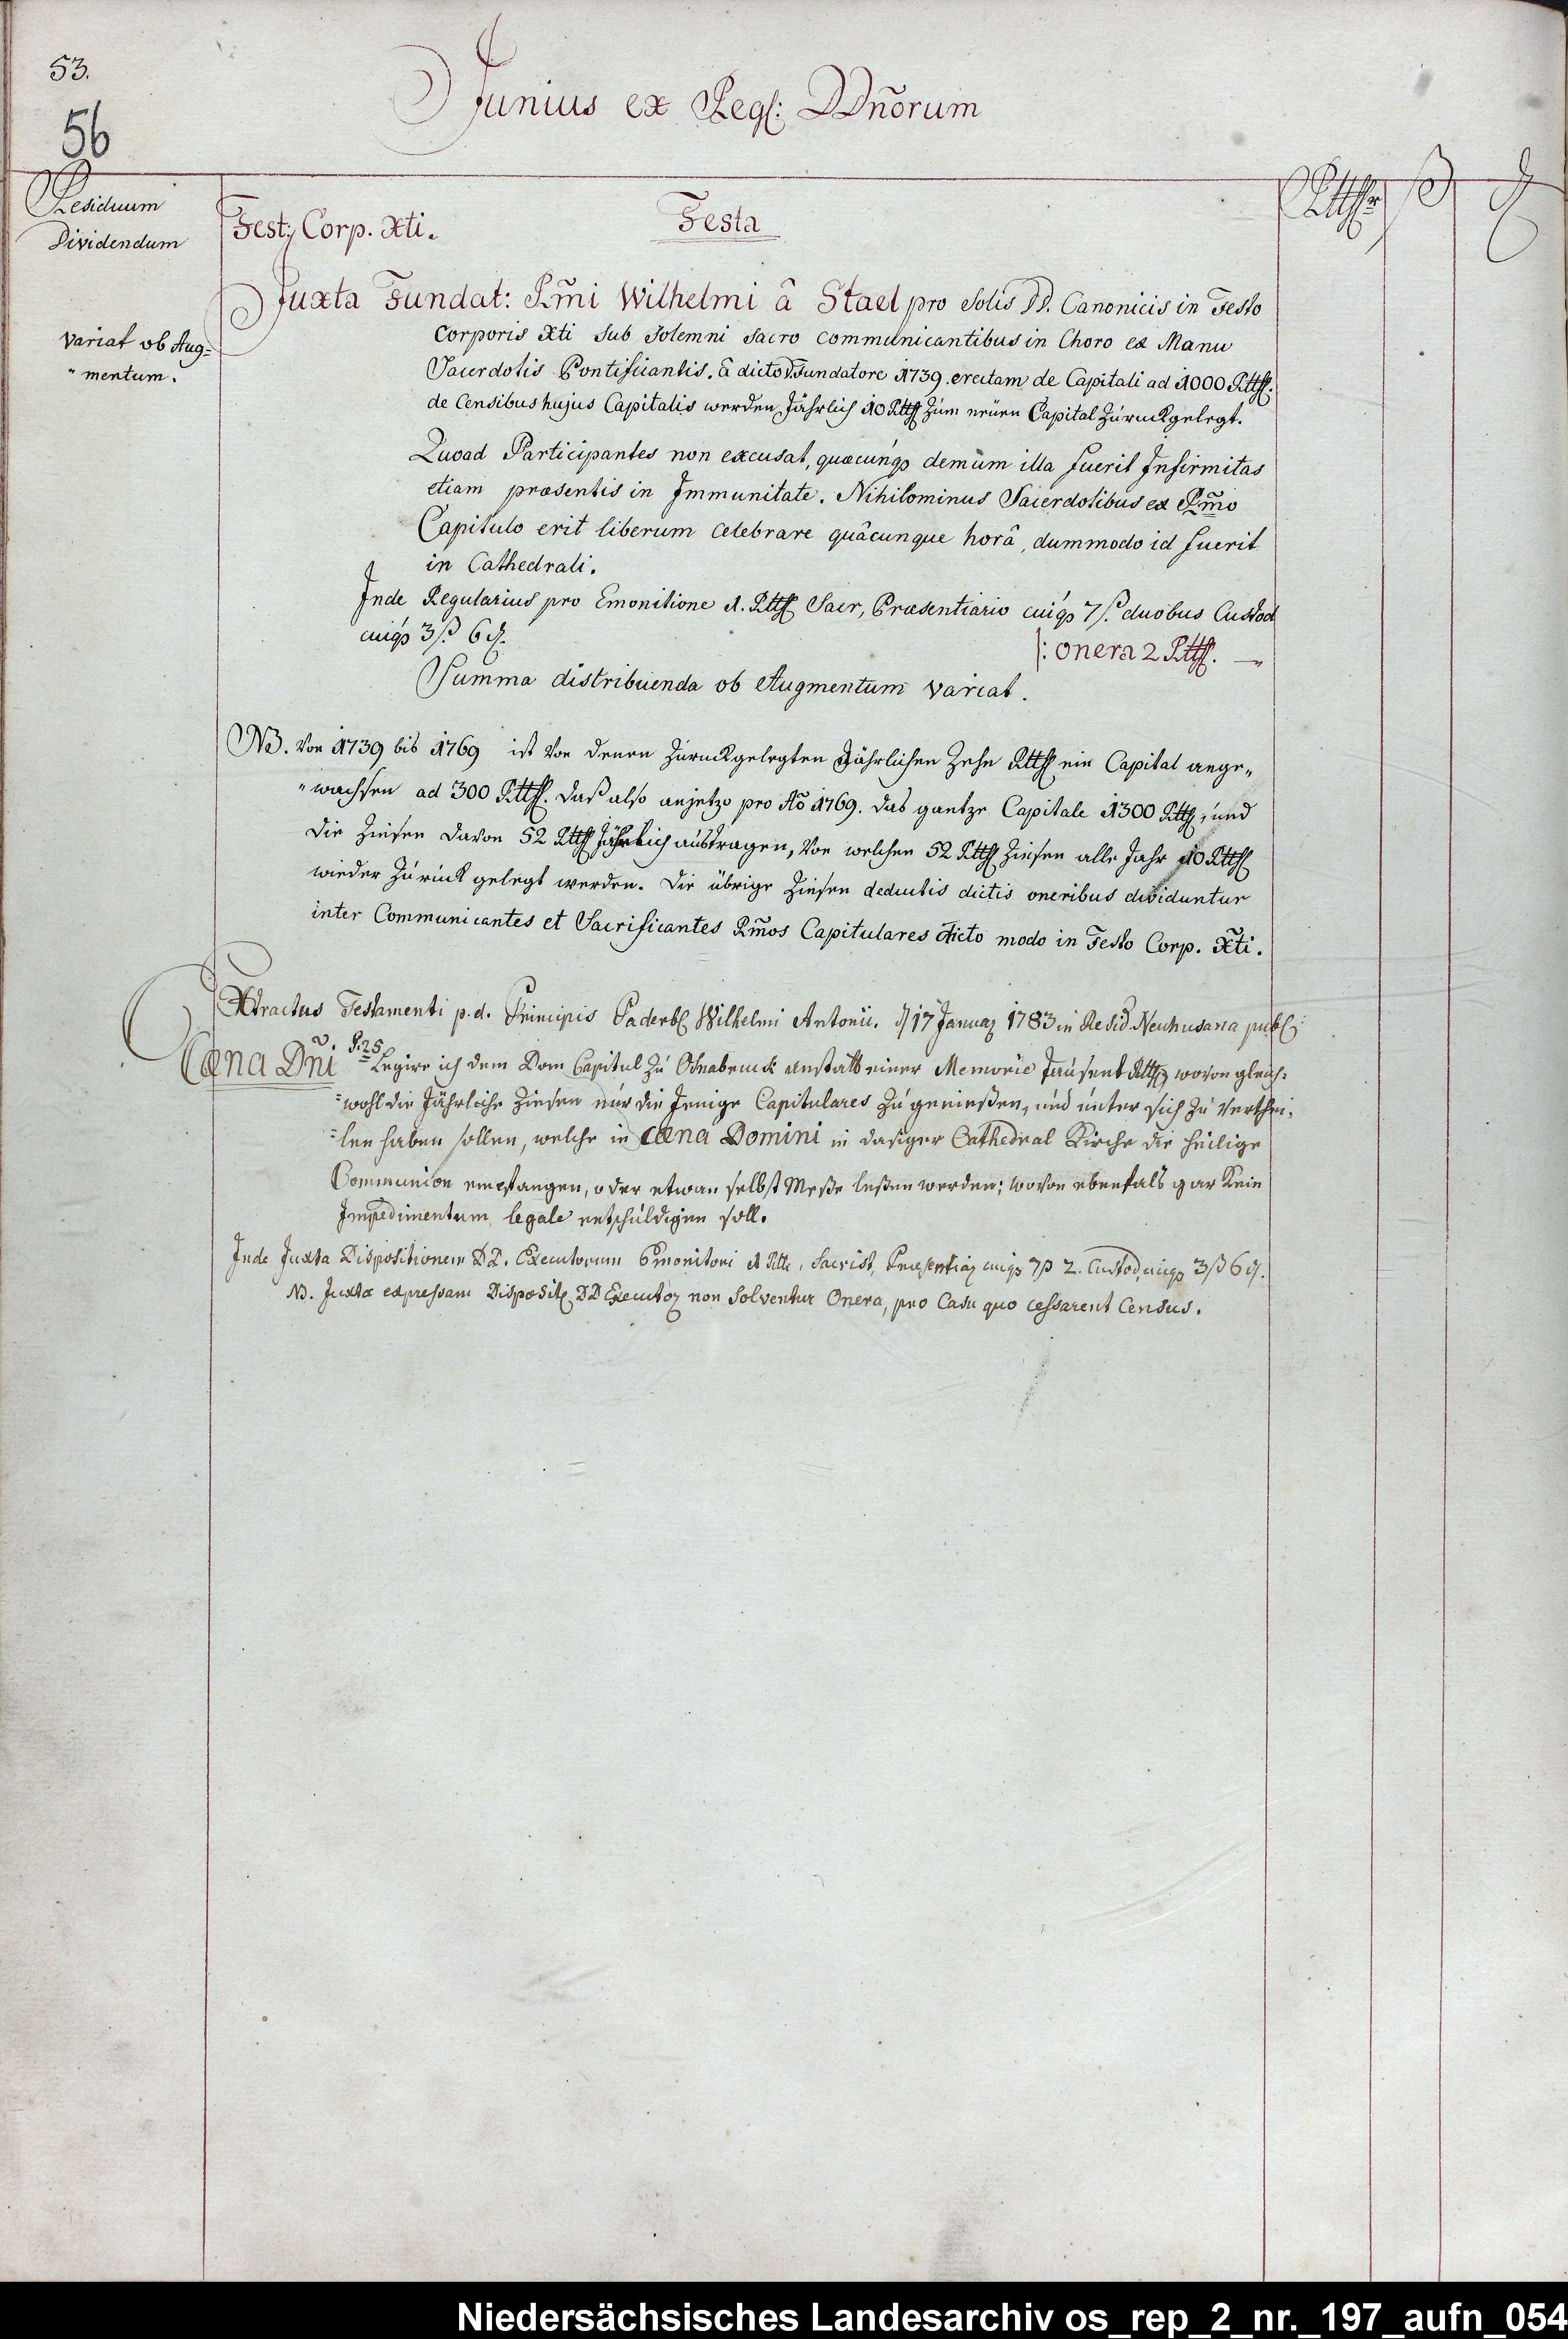 53.
56
Junius ex Regl: DDñorum
Residuum
Dividendum
Rthlr ß ₰
Fest: Corp. Xti. Festa
Juxta Fundat: Rm̃i Wilhelmi â Stael pro Solis DD. Canonicis in Festo
variat ob Aug=
"mentum.
Corporis Xti sub solemni sacro communicantibus in Choro ex Manu
Sacerdotis Pontificantis. â dicto D. Fundatore 1739. erectam de Capitali ad 1000 Rthl.
de Censibus hujus Capitalis werden Jährlich 10 Rthl Zum neuen Capital Zuruckgelegt.
Quoad Participantes non excusat, quæcunqꝫ demùm illa fuerit Infirmitas
etiam præsentis in Immunitate. Nihilominus Sacerdotibus ex Rm̃o
Capitulo erit liberum celebrare quâcunque horâ, dummodo id fuerit
in Cathedrali.
Inde Regularius pro Emonitione 1. Rthl Sacr, Præsentiario cuiqꝫ 7 ß. duobus Custod
cuiqꝫ 3 ß 6 ₰.
|: onera 2 Rthl. —
Summa distribuenda ob Augmentum variat.
NB. Von 1739 bis 1769 ist von denen Zuruckgelegten Jährlichen Zehn Rthl ein Capital ange"
"wachsen ad 300 Rthl. daß also anjetzo pro Aõ 1769. das gantze Capitale 1300 Rthl, und
die Zinsen davon 52 Rthl Jährlich austragen, Von welchen 52 Rthl Zinsen alle Jahr 10 Rthl
wieder Zurück gelegt werden. Die übrige Zinsen deductis dictis oneribus dividuntur
inter Communicantes et Sacrificantes Rm̃os Capitulares dicto modo in Festo Corp. Xt̃i.
Extractus Testamenti p. d. Principis Paderb. Wilhelmi Antonii. d 17 Januar 1783 in Resid. Neuhusana publ:
Cœna Dñi. §. 25 Legire ich dem Dom Capitul Zu Osnabruck anstatt einer Memorie Tausent Rthl wovon gleich=
=wohl die Jährliche Zinsen nur die Jenige Capitulares Zu genießen, und unter sich Zu Verthei=
=len haben sollen, welche in Cœna Domini in dasiger Cathedral Kirche die heilige
Communion empfangen, oder etwan selbst Meße leßen werden; wovon ebenfals gar Kein
Impedimentum legale entschuldigen soll.
Inde Juxta Dispositionem DD. Executorum Emonitori 1 Rthl, Sacrist, Præsentiar cuiqꝫ 7 ß 2. Custod. cuiqꝫ 3 ß 6 ₰.
NB. Juxta expressam Disposit. DD Executor non solventur Onera, pro Casu quo cessarent Census.
Niedersächsisches Landesarchiv os_rep_2_nr._197_aufn_054